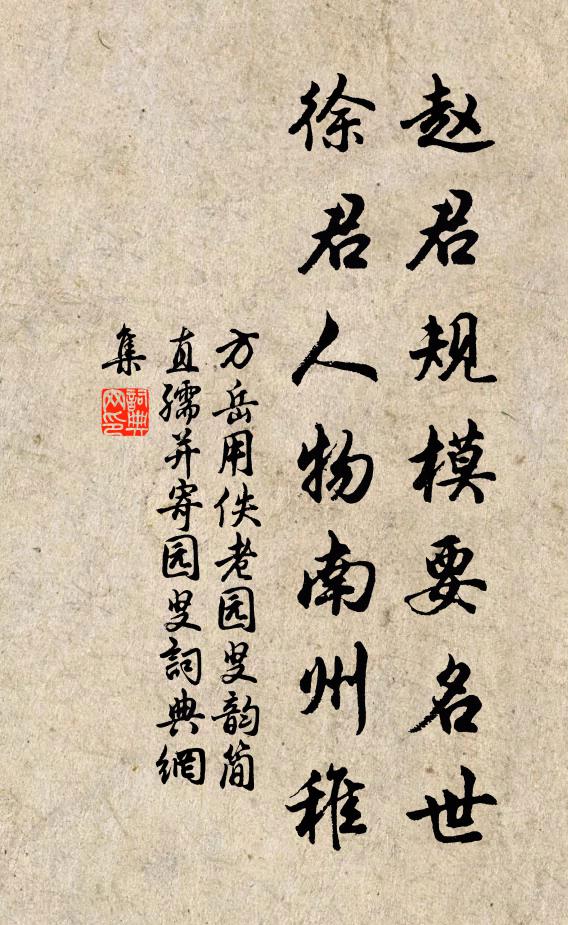 赵君规模要名世
徐君人物南州稚
方岳用佚老园叟韵简
直孺并寄园叟詞典網
集
詞典
网印